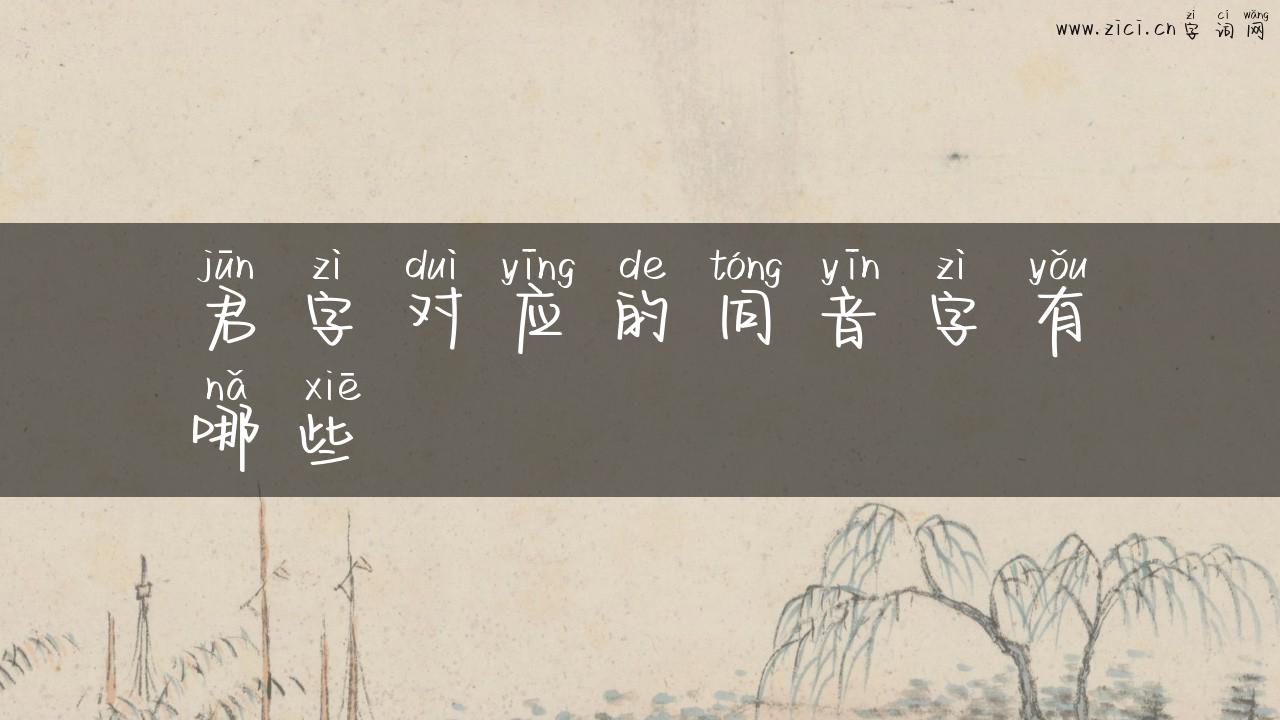 zì cí wǎng
www.zici.cn 字词网
jūn zì duì yīng de tóng yīn zì yǒu
君字对应的同音字有
nǎ xiē
哪些